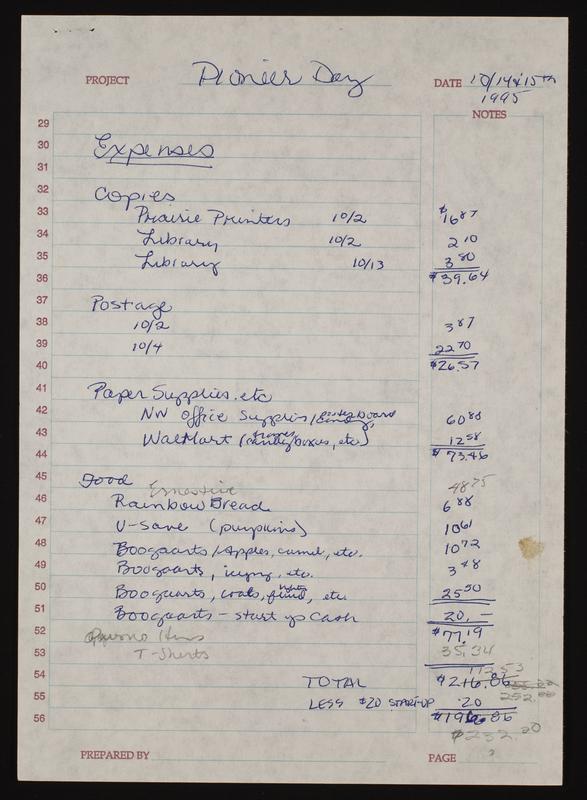 PROJECT Pioneer Day DATE 10/14 & 15th
1995
NOTES
29
30 Expenses
31
32 Copies
33 Prairie Printers 10/2 $16 87
34 Library 10/2 2 10
35 Library 10/13 3 80
36 $39.64
37 Postage
38 10/2 3 87
39 10/4 22 70
40 $26.57
41 Paper Supplies, etc
42 NW Office Supplies / board 60 88
43 WalMart ( boxes, etc) 12 58
44 $ 73.46
45 Food 48 75
46 Rainbow Bread 6 88
47 U-Save (pumpkins) 10 61
48 Boogaarts / Apples, caramel, etc. 10 72
49 Boogaarts, icing, etc. 3 48
50 Boogaarts, coals, fluid, etc. 25 50
51 Boogaarts - start up cash 20, —
52 $77.19
53 T-Shirts 35.34
54 112.53
TOTAL $216.86
252.20
55 LESS $20 START-UP 20
56 $196.86
$232.20
PREPARED BY PAGE